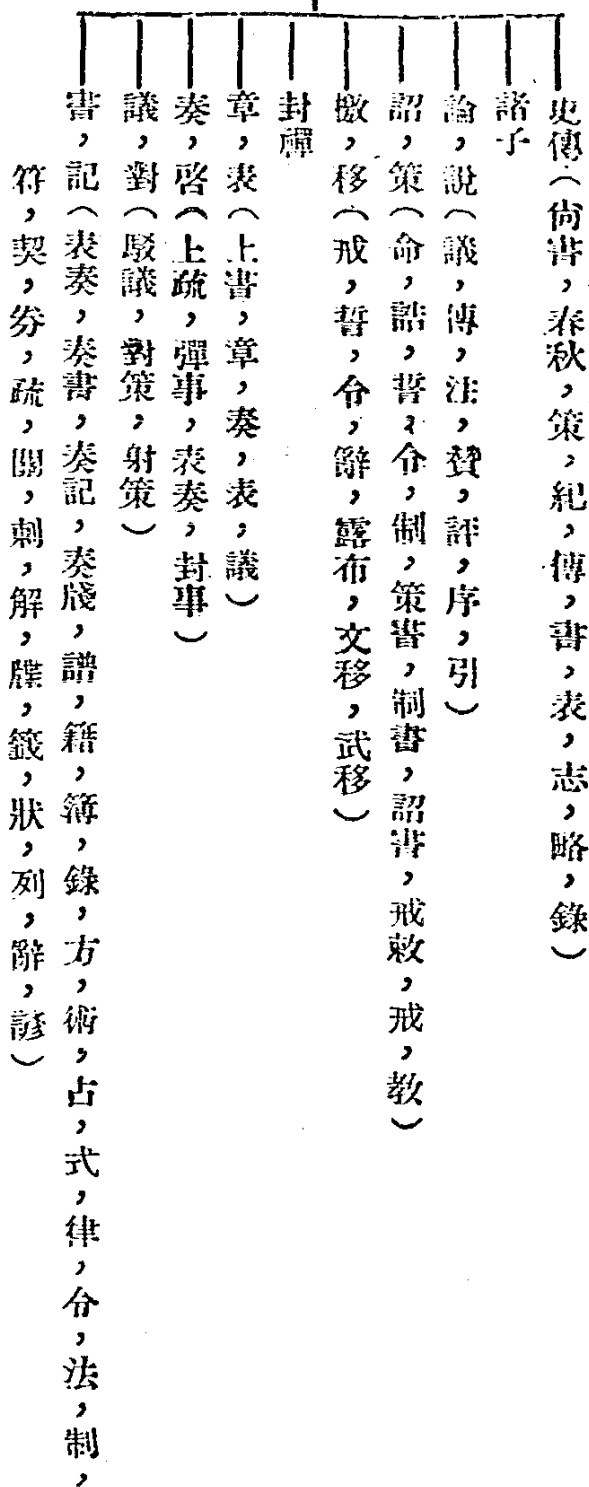 史傳（尙書，春秋，策，紀，傳，書，表，志，略，錄）
諸子
論，說（議，傳，注，贊，評，序，引）
詔，策（命，誥，誓，令，制，策書，制書，詔書，戒敕，戒，教）
檄，移（戒，誓，令，辭，露布，文移，武移）
封禪
章，表（上書，章，奏，表，議）
奏，啓（上疏，彈事，表奏，封事）
議，對（駁議，對策，射策）
書，記（表奏，奏書，奏記，奏牋，譜，籍，簿，錄，方，術，占，式，律，令，法，制，
符，契，券，疏，關，刺，解，牒，籤，狀，列，辭，諺）